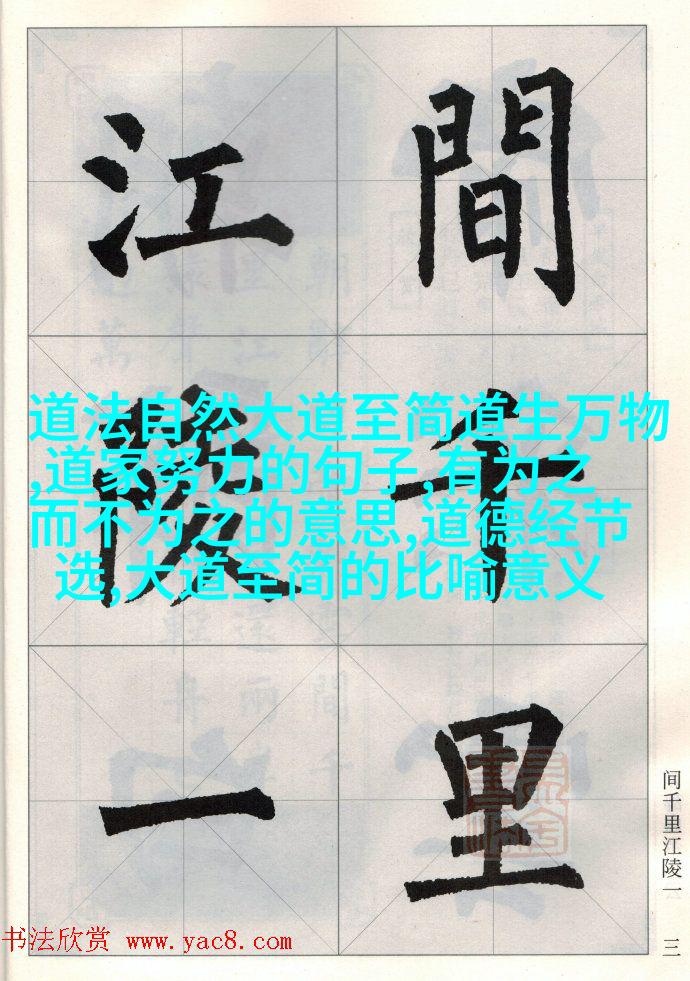 間千里
江陵一
道法自然大道至简道生万物
,道家努力的句子,有为之
而不为之的意思,道德经节
选,大道至简的比喻意义
间千里江陵一
三
书法欣赏 www.yac8.com